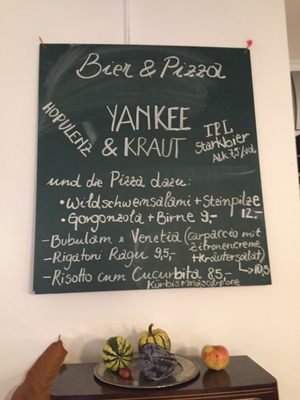 Bier & Pizza
HOPULENZ
YANKEE
& KRAUT
IPL
Starkbier
Alk 7,5%vol
und die Pizza dazu:
• Wildschweinsalami + Steinpilze 12,-
• Gorgonzola + Birne 9,-
- Bubulam e Venetia (Carpaccio mit
Zitronencreme
+ Kräutersalat)
- Rigatoni Ragu 9,5,-
→ 10,5
- Risotto cum Cucurbita 8,5,-
Kürbis + mascarpone